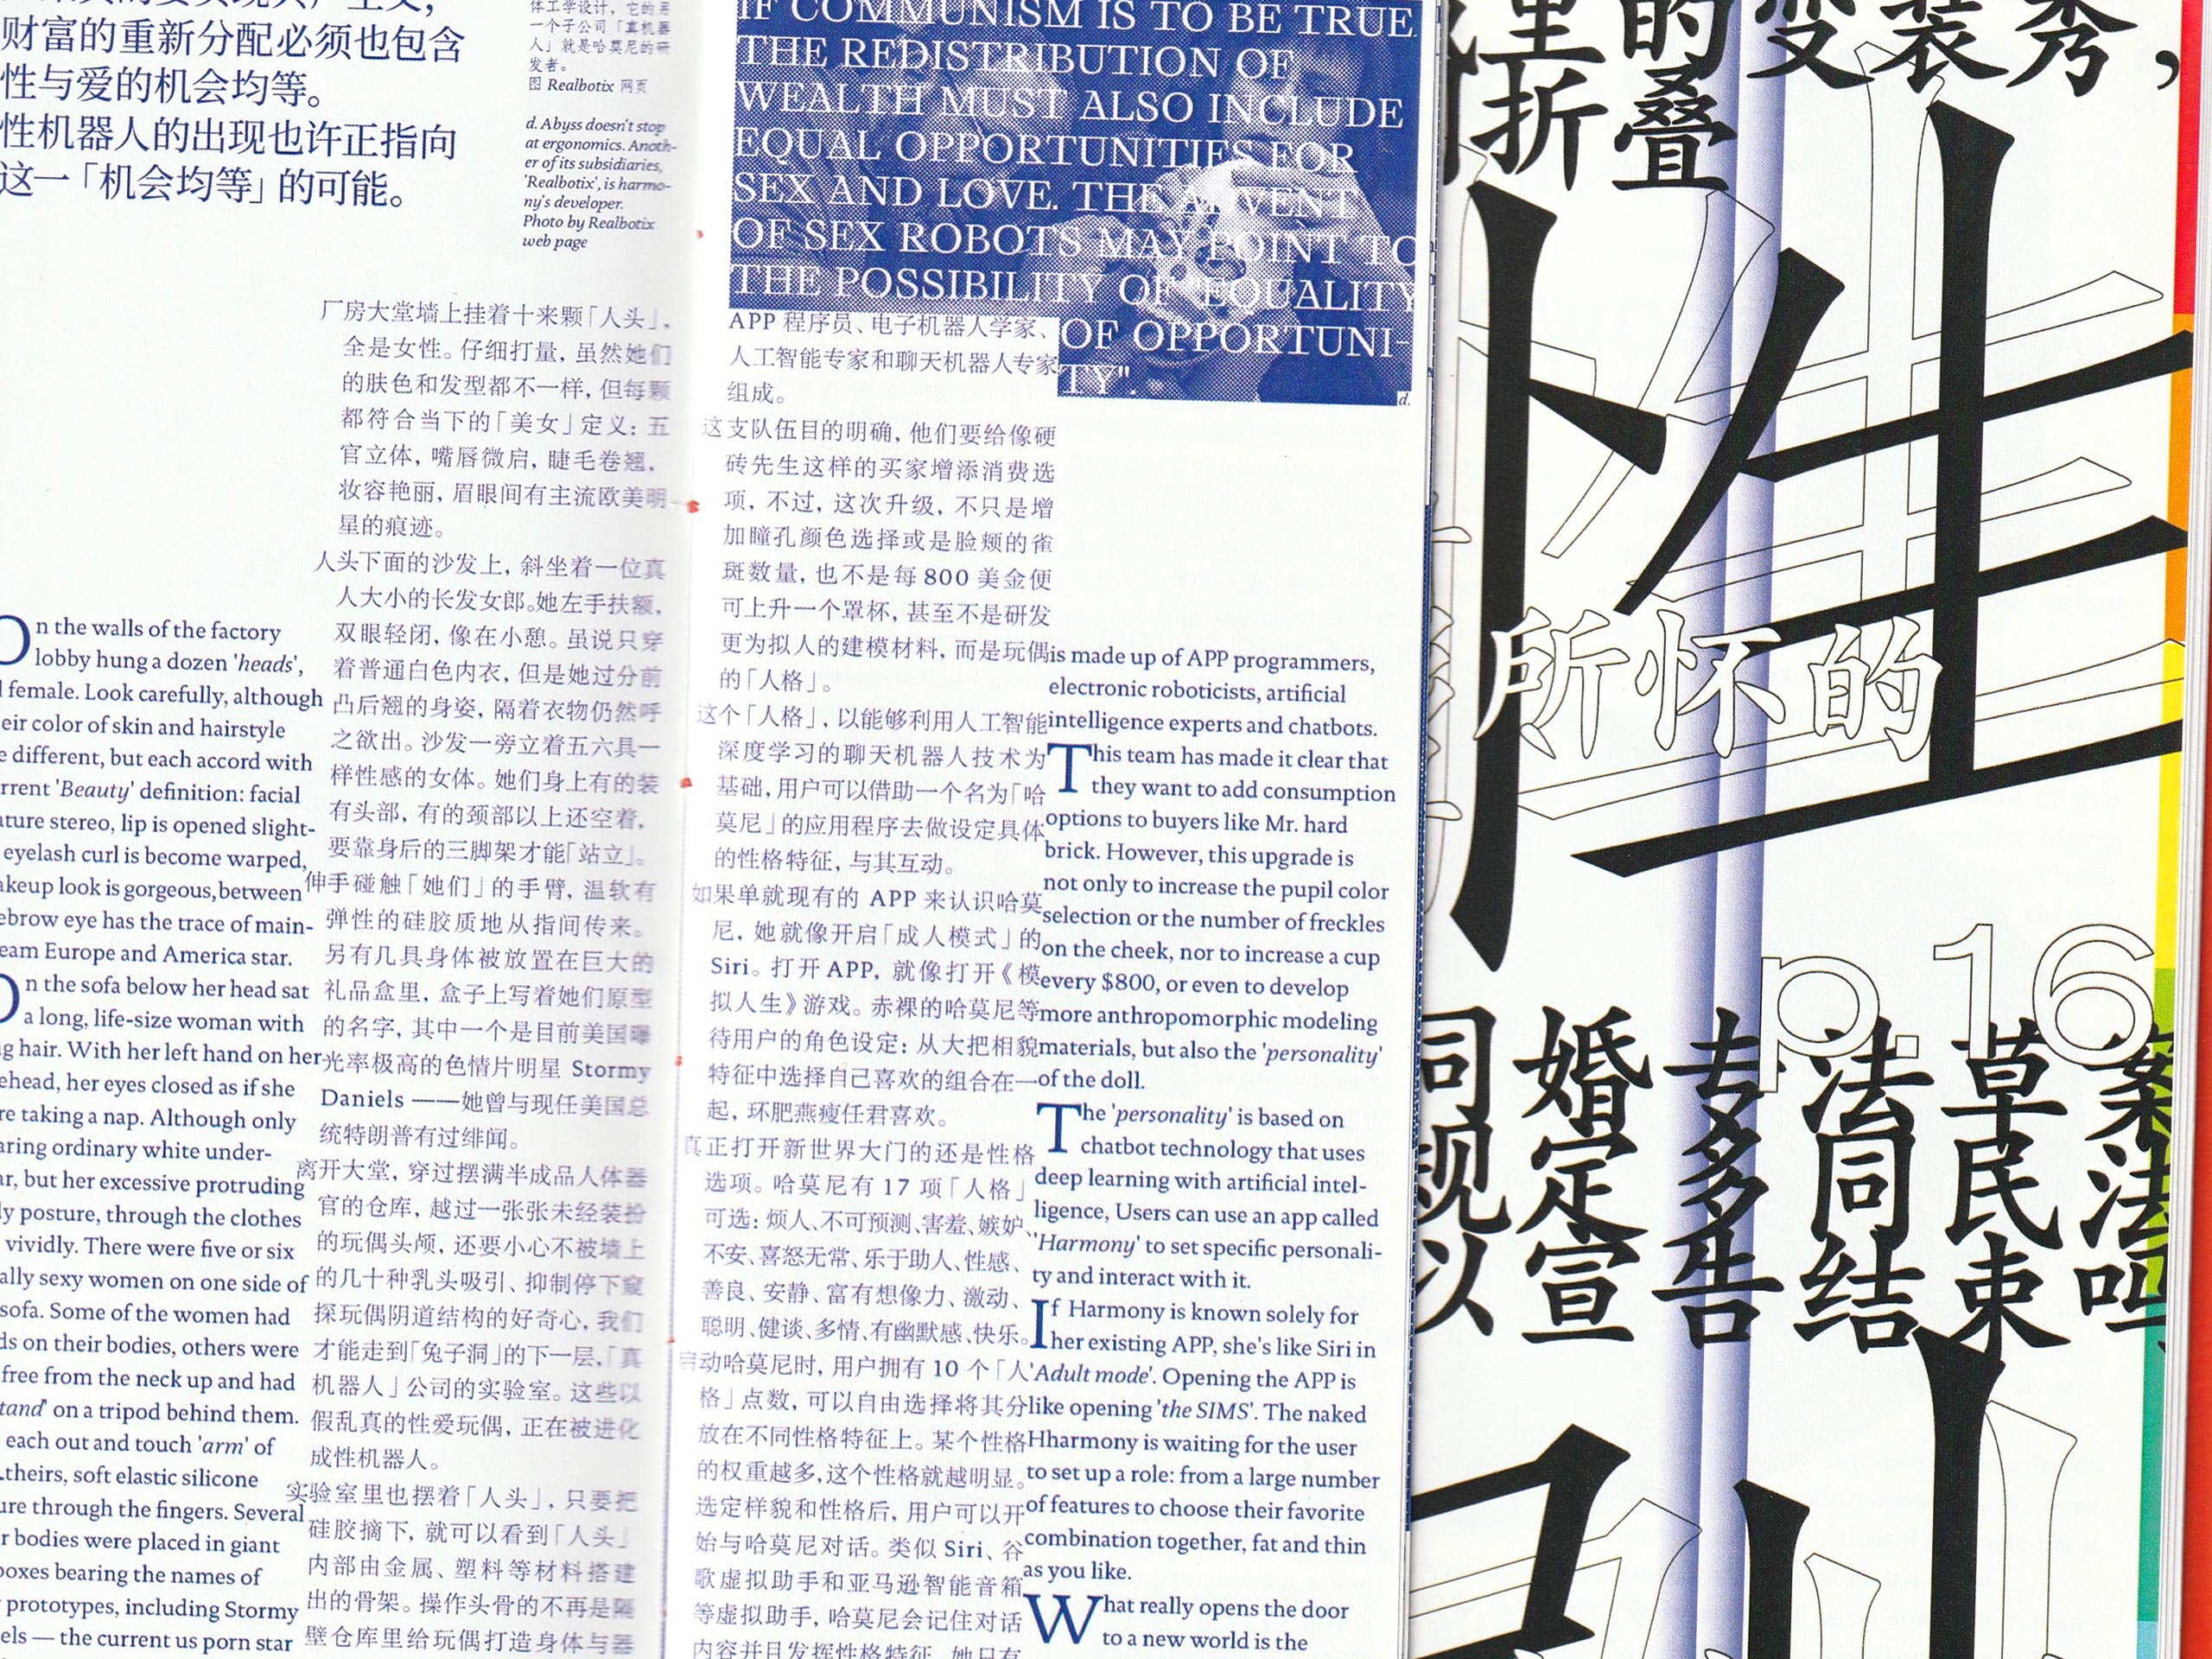 财富的重新分配必须也包含
性与爱的机会均等。
性机器人的出现也许正指向
这一「机会均等」的可能。
体工学设计，它的另
一个子公司「真机器
人」就是哈莫尼的研
发者。
图 Realbotix 网页
d. Abyss doesn't stop
at ergonomics. Anoth-
er of its subsidiaries,
'Realbotix', is harmo-
ny's developer.
Photo by Realbotix
web page
n the walls of the factory
lobby hung a dozen 'heads',
female. Look carefully, although
eir color of skin and hairstyle
e different, but each accord with
rrent 'Beauty' definition: facial
ature stereo, lip is opened slight-
eyelash curl is become warped,
akeup look is gorgeous, between
ebrow eye has the trace of main-
eam Europe and America star.
n the sofa below her head sat
a long, life-size woman with
g hair. With her left hand on her
ehead, her eyes closed as if she
re taking a nap. Although only
aring ordinary white under-
r, but her excessive protruding
ly posture, through the clothes
vividly. There were five or six
ally sexy women on one side of
sofa. Some of the women had
ds on their bodies, others were
free from the neck up and had
tand' on a tripod behind them.
each out and touch 'arm' of
theirs, soft elastic silicone
ure through the fingers. Several
r bodies were placed in giant
boxes bearing the names of
prototypes, including Stormy
els — the current us porn star
厂房大堂墙上挂着十来颗「人头」，
全是女性。仔细打量，虽然她们
的肤色和发型都不一样，但每颗
都符合当下的「美女」定义：五
官立体，嘴唇微启，睫毛卷翘，
妆容艳丽，眉眼间有主流欧美明
星的痕迹。
人头下面的沙发上，斜坐着一位真
人大小的长发女郎。她左手扶额，
双眼轻闭，像在小憩。虽说只穿
着普通白色内衣，但是她过分前
凸后翘的身姿，隔着衣物仍然呼
之欲出。沙发一旁立着五六具一
样性感的女体。她们身上有的装
有头部，有的颈部以上还空着，
要靠身后的三脚架才能「站立」。
伸手碰触「她们」的手臂，温软有
弹性的硅胶质地从指间传来。
另有几具身体被放置在巨大的
礼品盒里，盒子上写着她们原型
的名字，其中一个是目前美国曝
光率极高的色情片明星 Stormy
Daniels ——她曾与现任美国总
统特朗普有过绯闻。
离开大堂，穿过摆满半成品人体器
官的仓库，越过一张张未经装扮
的玩偶头颅，还要小心不被墙上
的几十种乳头吸引、抑制停下窥
探玩偶阴道结构的好奇心，我们
才能走到「兔子洞」的下一层，「真
机器人」公司的实验室。这些以
假乱真的性爱玩偶，正在被进化
成性机器人。
实验室里也摆着「人头」，只要把
硅胶摘下，就可以看到「人头」
内部由金属、塑料等材料搭建
出的骨架。操作头骨的不再是隔
壁仓库里给玩偶打造身体与器
IF COMMUNISM IS TO BE TRUE
THE REDISTRIBUTION OF
WEALTH MUST ALSO INCLUDE
EQUAL OPPORTUNITIES FOR
SEX AND LOVE. THE ADVENT
OF SEX ROBOTS MAY POINT TO
THE POSSIBILITY OF EQUALITY
OF OPPORTUNI-
TY".
d.
APP 程序员、电子机器人学家、
人工智能专家和聊天机器人专家
组成。
这支队伍目的明确，他们要给像硬
砖先生这样的买家增添消费选
项，不过，这次升级，不只是增
加瞳孔颜色选择或是脸颊的雀
斑数量，也不是每 800 美金便
可上升一个罩杯，甚至不是研发
更为拟人的建模材料，而是玩偶
的「人格」。
这个「人格」，以能够利用人工智能
深度学习的聊天机器人技术为
基础，用户可以借助一个名为「哈
莫尼」的应用程序去做设定具体
的性格特征，与其互动。
如果单就现有的 APP 来认识哈莫
尼，她就像开启「成人模式」的
Siri。打开 APP，就像打开《模
拟人生》游戏。赤裸的哈莫尼等
待用户的角色设定：从大把相貌
特征中选择自己喜欢的组合在一
起，环肥燕瘦任君喜欢。
真正打开新世界大门的还是性格
选项。哈莫尼有 17 项「人格」
可选：烦人、不可预测、害羞、嫉妒、
不安、喜怒无常、乐于助人、性感、
善良、安静、富有想像力、激动、
聪明、健谈、多情、有幽默感、快乐。
启动哈莫尼时，用户拥有 10 个「人
格」点数，可以自由选择将其分
放在不同性格特征上。某个性格
的权重越多，这个性格就越明显。
选定样貌和性格后，用户可以开
始与哈莫尼对话。类似 Siri、谷
歌虚拟助手和亚马逊智能音箱
等虚拟助手，哈莫尼会记住对话
内容并且发挥性格特征。她只有
is made up of APP programmers,
electronic roboticists, artificial
intelligence experts and chatbots.
This team has made it clear that
they want to add consumption
options to buyers like Mr. hard
brick. However, this upgrade is
not only to increase the pupil color
selection or the number of freckles
on the cheek, nor to increase a cup
every $800, or even to develop
more anthropomorphic modeling
materials, but also the 'personality'
of the doll.
The 'personality' is based on
chatbot technology that uses
deep learning with artificial intel-
ligence, Users can use an app called
'Harmony' to set specific personali-
ty and interact with it.
If Harmony is known solely for
her existing APP, she's like Siri in
'Adult mode'. Opening the APP is
like opening 'the SIMS'. The naked
Hharmony is waiting for the user
to set up a role: from a large number
of features to choose their favorite
combination together, fat and thin
as you like.
What really opens the door
to a new world is the
里的变装秀，
折叠
性
所怀的
p.16
同婚专法草案
规定多同民法
以宣告结束吗